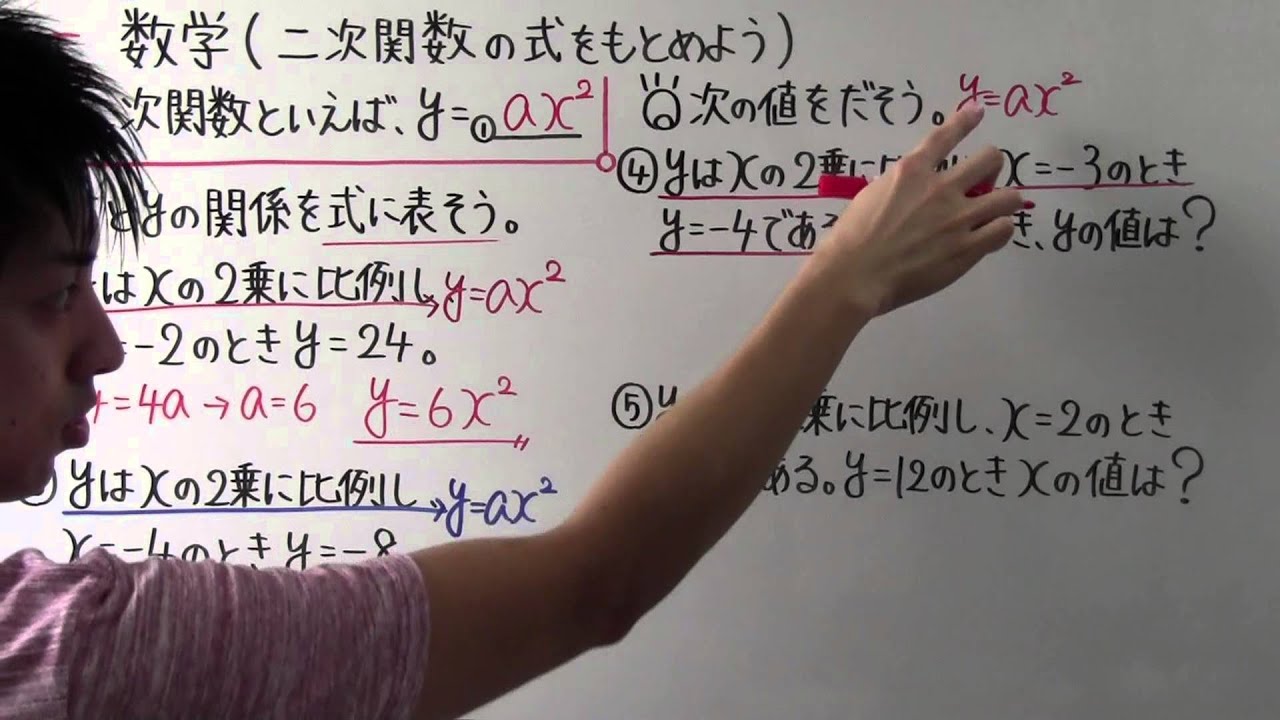 数学(二次関数の式をもとめよう)
次関数といえば、y=①ax²
yの関係を式に表そう。
はxの2乗に比例し→y=ax²
-2のときy=24。
=4a→a=6 y=6x²
yはxの2乗に比例し→y=ax²
x=-4のときy=-8
次の値をだそう。y=ax²
④yはxの2乗に x=-3のとき
y=-4である き、yの値は?
⑤y 乗に比例し、x=2のとき
ある。y=12のときxの値は?